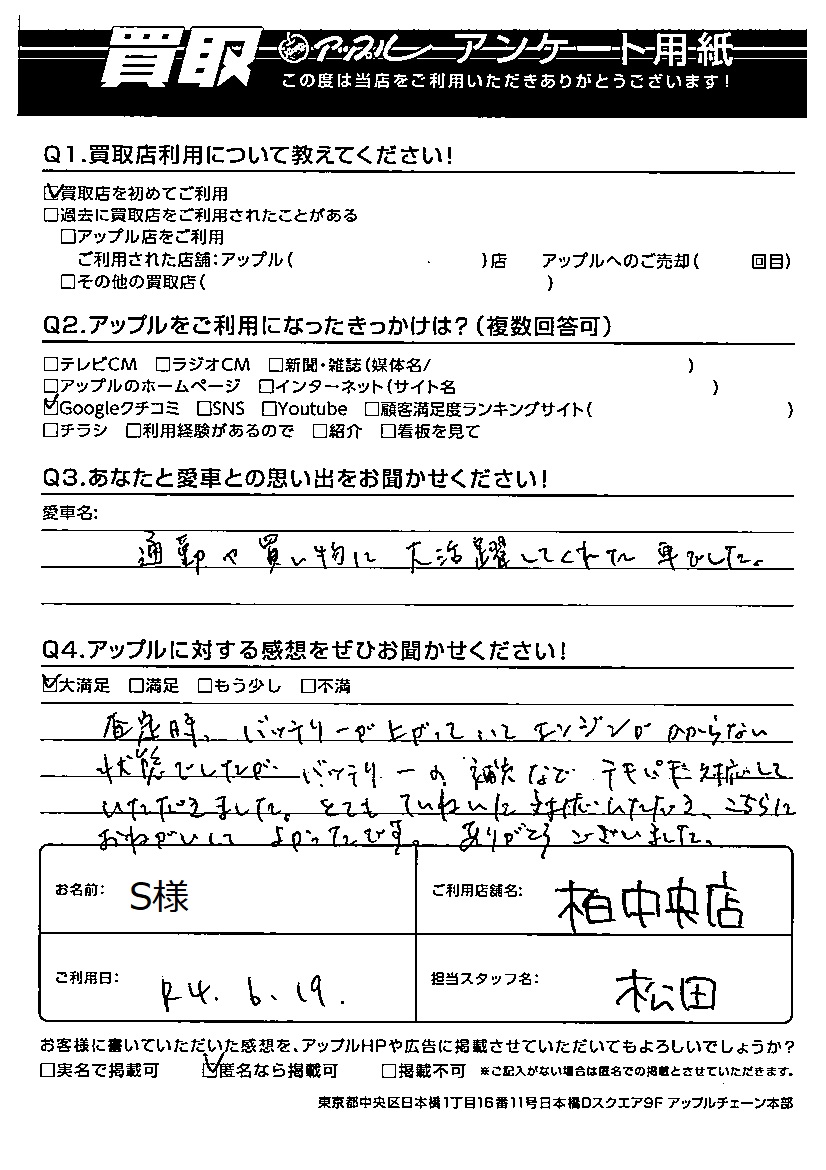 買取 アップル アンケート用紙
この度は当店をご利用いただきありがとうございます!
Q1.買取店利用について教えてください!
☑買取店を初めてご利用
□過去に買取店をご利用されたことがある
□アップル店をご利用
ご利用された店舗:アップル( )店 アップルへのご売却( 回目)
□その他の買取店( )
Q2.アップルをご利用になったきっかけは?(複数回答可)
□テレビCM □ラジオCM □新聞・雑誌(媒体名/ )
□アップルのホームページ □インターネット(サイト名 )
☑Googleクチコミ □SNS □Youtube □顧客満足度ランキングサイト( )
□チラシ □利用経験があるので □紹介 □看板を見て
Q3.あなたと愛車との思い出をお聞かせください!
愛車名:
通勤や買い物に大活躍してくれた車でした。
Q4.アップルに対する感想をぜひお聞かせください!
☑大満足 □満足 □もう少し □不満
査定時、バッテリーが上がっていてエンジンがかからない
状態でしたが バッテリーの 補充など テキパキ対応して
いただきました。とても ていねいな対応いただき、こちらに
おねがいして よかったです。ありがとうございました。
お名前: S様
ご利用店舗名: 柏中央店
ご利用日: R4.6.19.
担当スタッフ名: 松田
お客様に書いていただいた感想を、アップルHPや広告に掲載させていただいてもよろしいでしょうか?
□実名で掲載可 ☑匿名なら掲載可 □掲載不可 ※ご記入がない場合は匿名での掲載とさせていただきます。
東京都中央区日本橋1丁目16番11号日本橋Dスクエア9F アップルチェーン本部